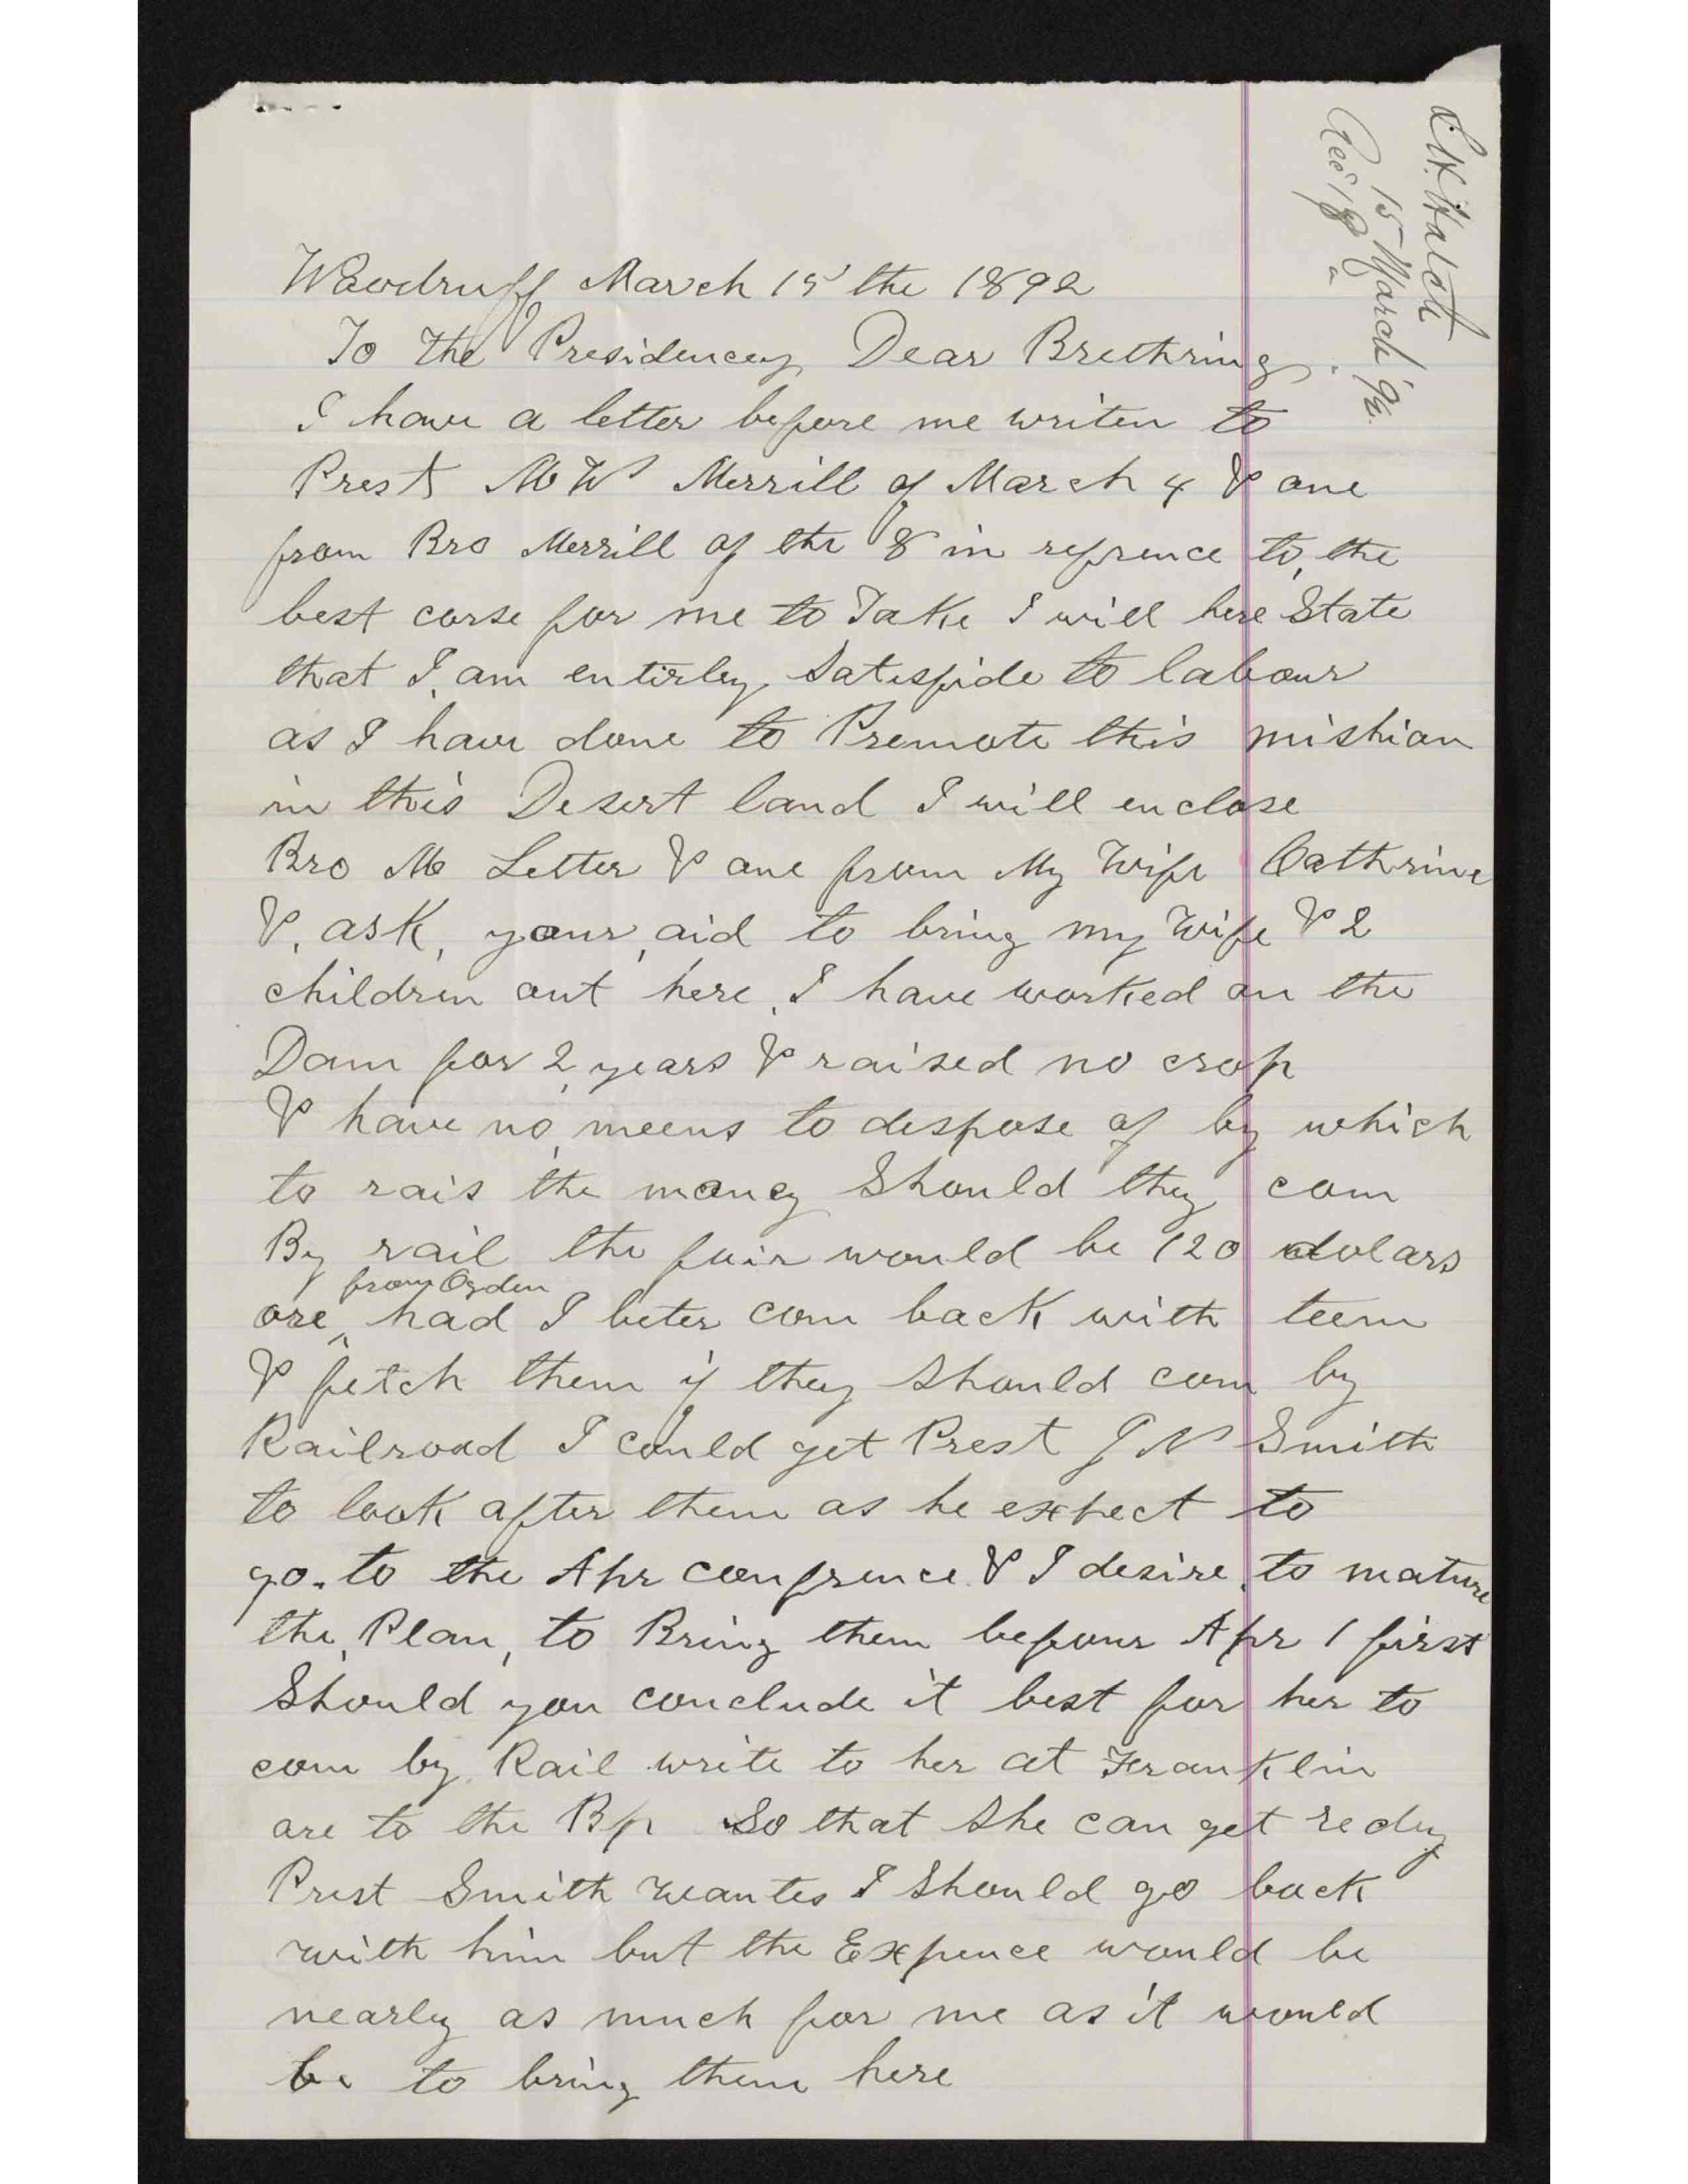 L. H. Hatch
15 March '92.
Rec'd 18 "
Woodruff March 15 the 1892
To the Presidencey Dear Brethring
I have a letter before me writen to
Prest M W Merrill of March 4 & one
from Bro Merrill of the 8 in refrence to, the
best corse for me to Take I will here State
that I am entirley Satesfide to labour
as I have done to Premote this mishion
in this Desert land I will enclose
Bro M Letter & one from My Wife Cathrine
&, ask, your, aid to bring my Wife & 2
children out here, I have worked on the
Dam for 2 years & raised no crop
& have no, meens to dispose of by which
to rais the money Should they com
By rail the fair would be 120 dolars
from Ogden
ore ^ had I beter com back with teem
& fetch them if they Should com by
Railroad I could get Prest J N Smith
to look after them as he expect to
go. to the Apr Confrence. & I desire, to mature
the, Plan, to Bring them before Apr 1 first
Should you conclude it best for her to
com by Rail write to her at Franklin
are to the Bp So that She can get redey
Prest Smith wantes I Should go back
with him but the Expence would be
nearley as much for me as it would
be to bring them here